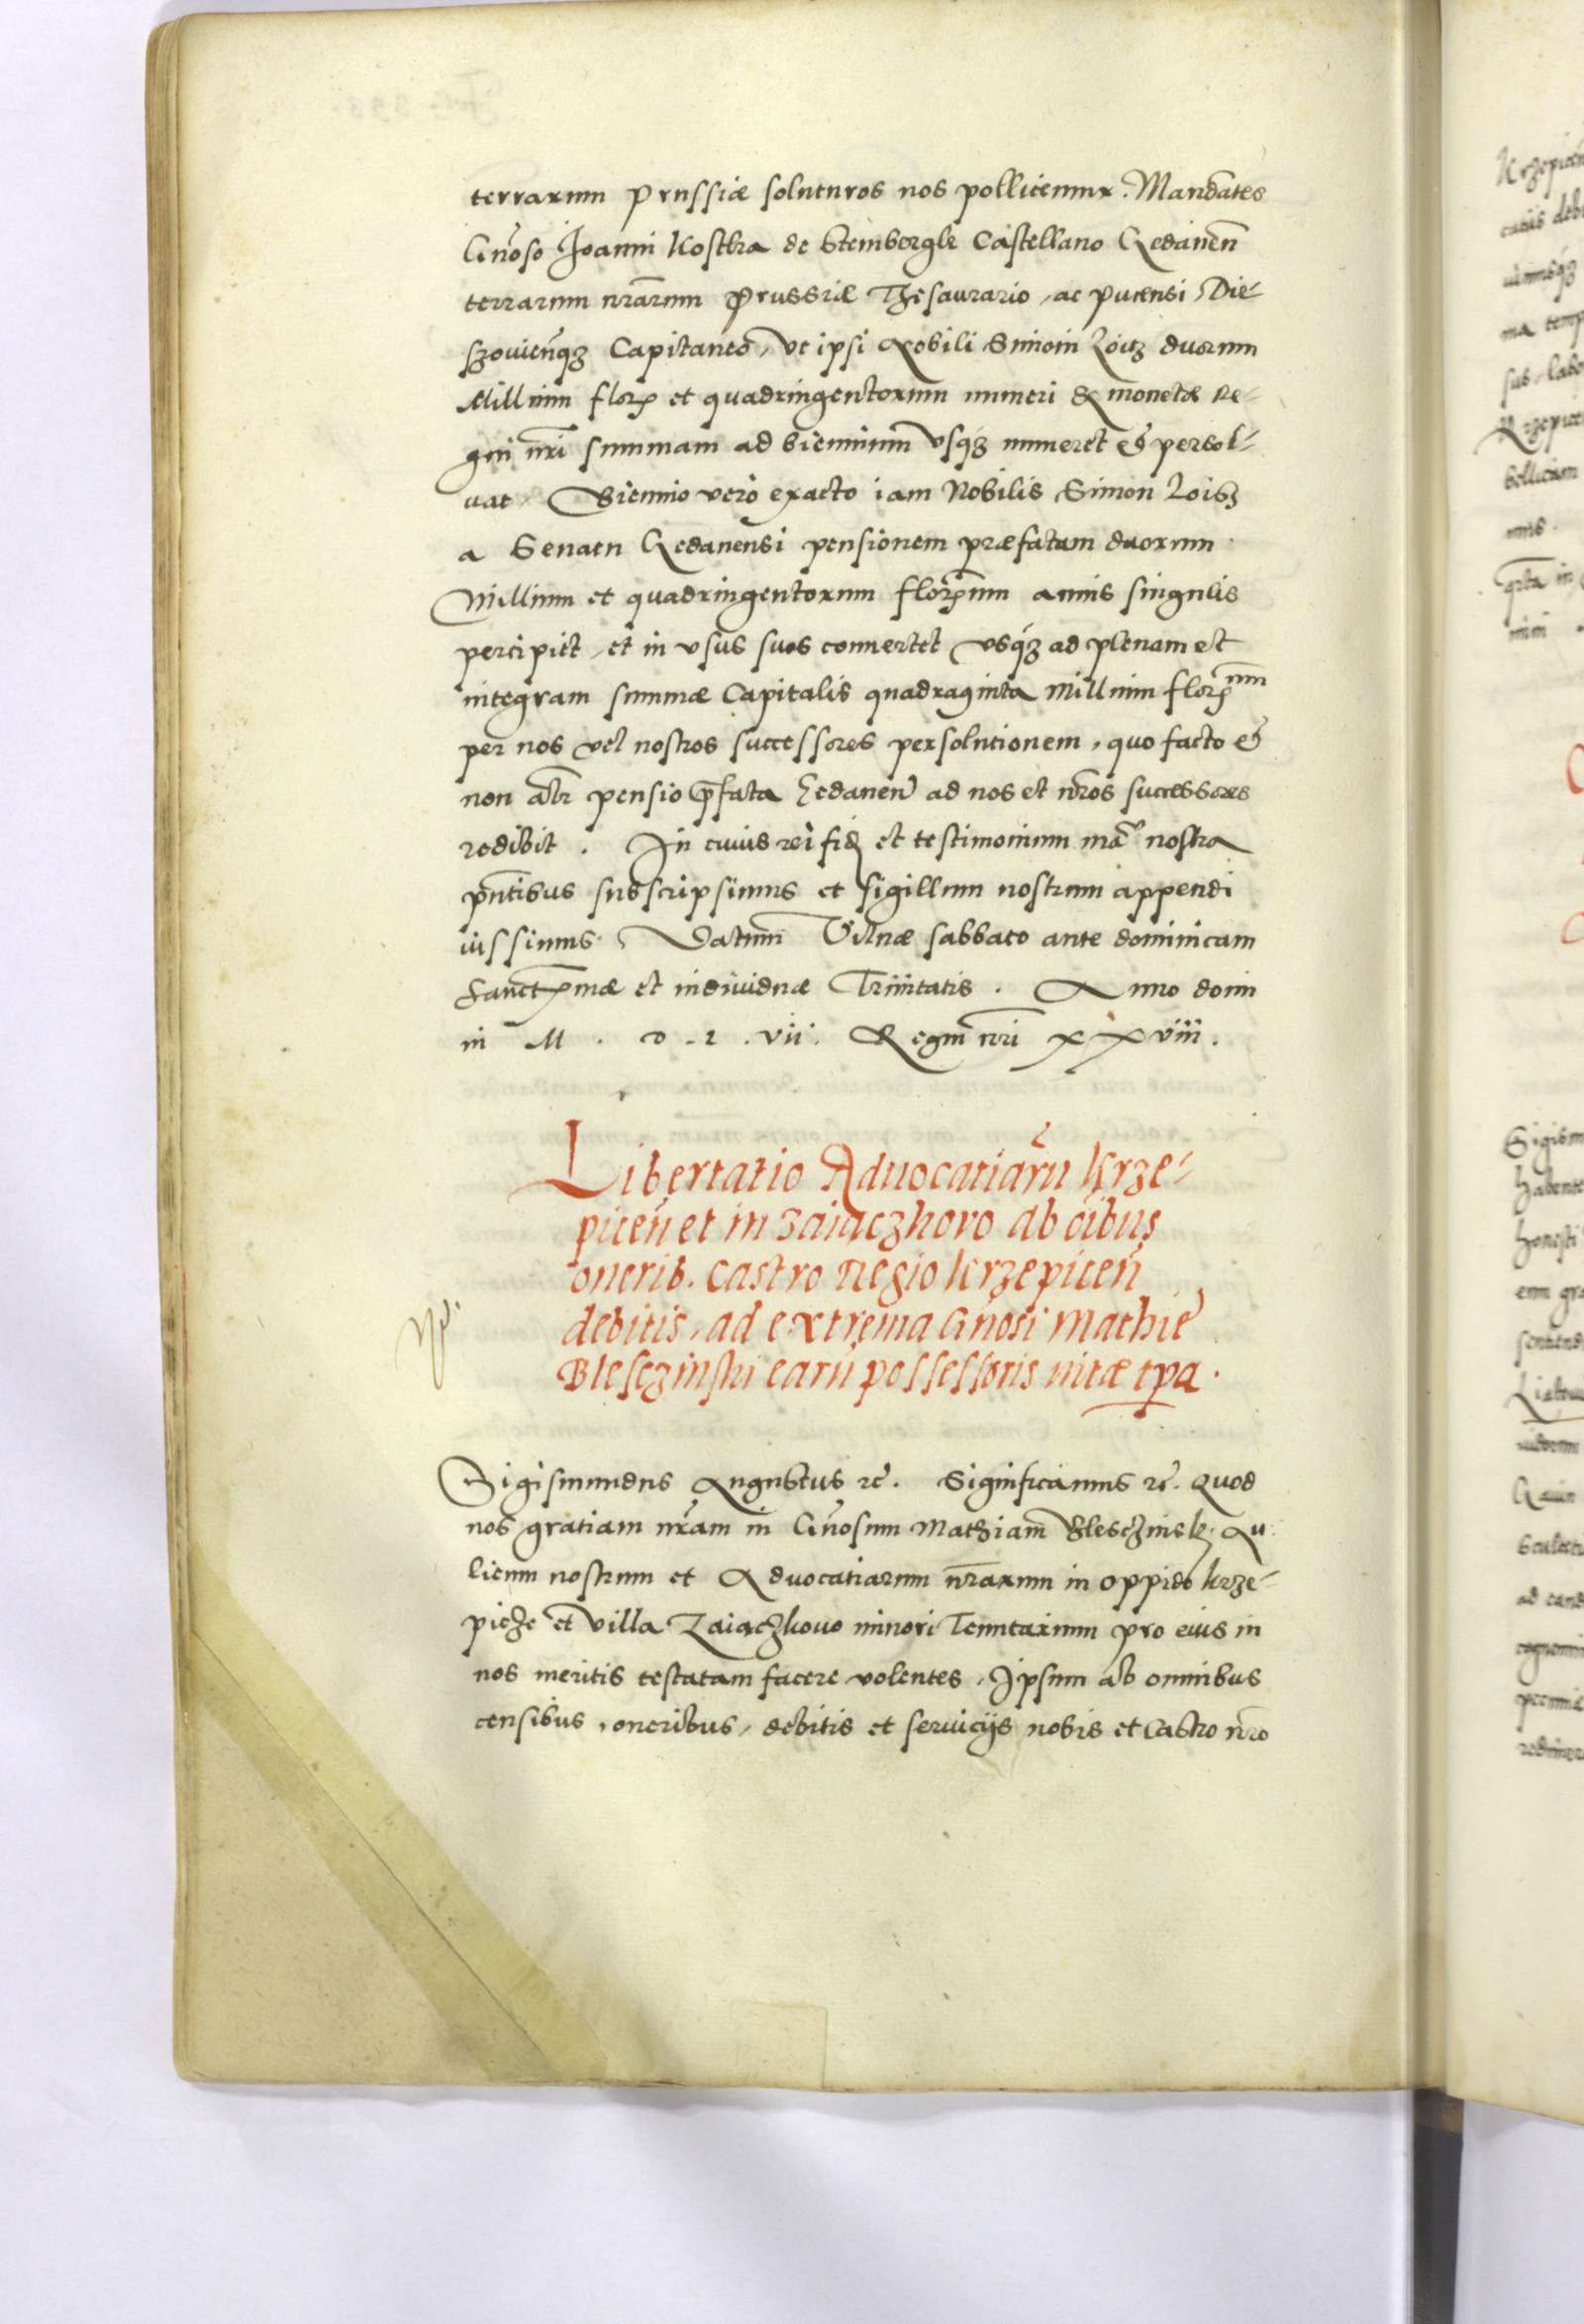 terrarum Prussiæ soluturos nos pollicemur. Mandātes
Gn̄oso Joanni Kostka de Stembergk Castellano Gedanen̄
terrarum nr̄arum Prussiæ Thesaurario, ac Pucensi, Die-
szovien̄qꝫ Capitaneo, vt ipsi Nobili Simoni Loitz duorum
Millium floꝝ et quadringentorum numeri & monetæ Re-
gni nr̄i summam ad biennium vsqꝫ numeret & persol-
uat, Biennio vero exacto iam Nobilis Simon Loisz
a Senatu Gedanensi pensionem præfatam duorum
Millium et quadringentorum floꝝenum annis singulis
percipiet, et in vsus suos conuertet vsqꝫ ad plenam et
integram summæ Capitalis quadraginta Millium floꝝnum
per nos vel nostros successores persolutionem, quo facto &
non alr̄ pensio p̄fata Gedanen̄ ad nos et nr̄os successores
redibit. In cuius rei fidē et testimonium manꝰ nostra
pn̄tibus subscripsimus et sigillum nostrum appendi
iussimus. Datum Vilnæ sabbato ante dominicam
Sanctꝝmæ et indiuiduæ Trinitatis. Anno domi
ni M. D. L. vii. Regni nr̄i xxviii.
Libertatio Aduocatiarū Krze-
picen̄ et in Zaiaczkovo ab oībus
onerib. castro Regio Krzepicen̄
debitis, ad extrema Gn̄osi Mathie
Blesczinski earū possessoris uitæ tp̄a.
Sigismundus Augustus rc̄. Significamus rc̄. Quod
nos gratiam nr̄am in Gn̄osum Mathiam Blesczinsk. Au
licum nostrum et Aduocatiarum nr̄arum in oppido Krze-
picze et villa Zaiaczkouo minori Tenutarium pro eius in
nos meritis testatam facere volentes, Ipsum ab omnibus
censibus, oneribus, debitis et seruicijs nobis et Castro nr̄o